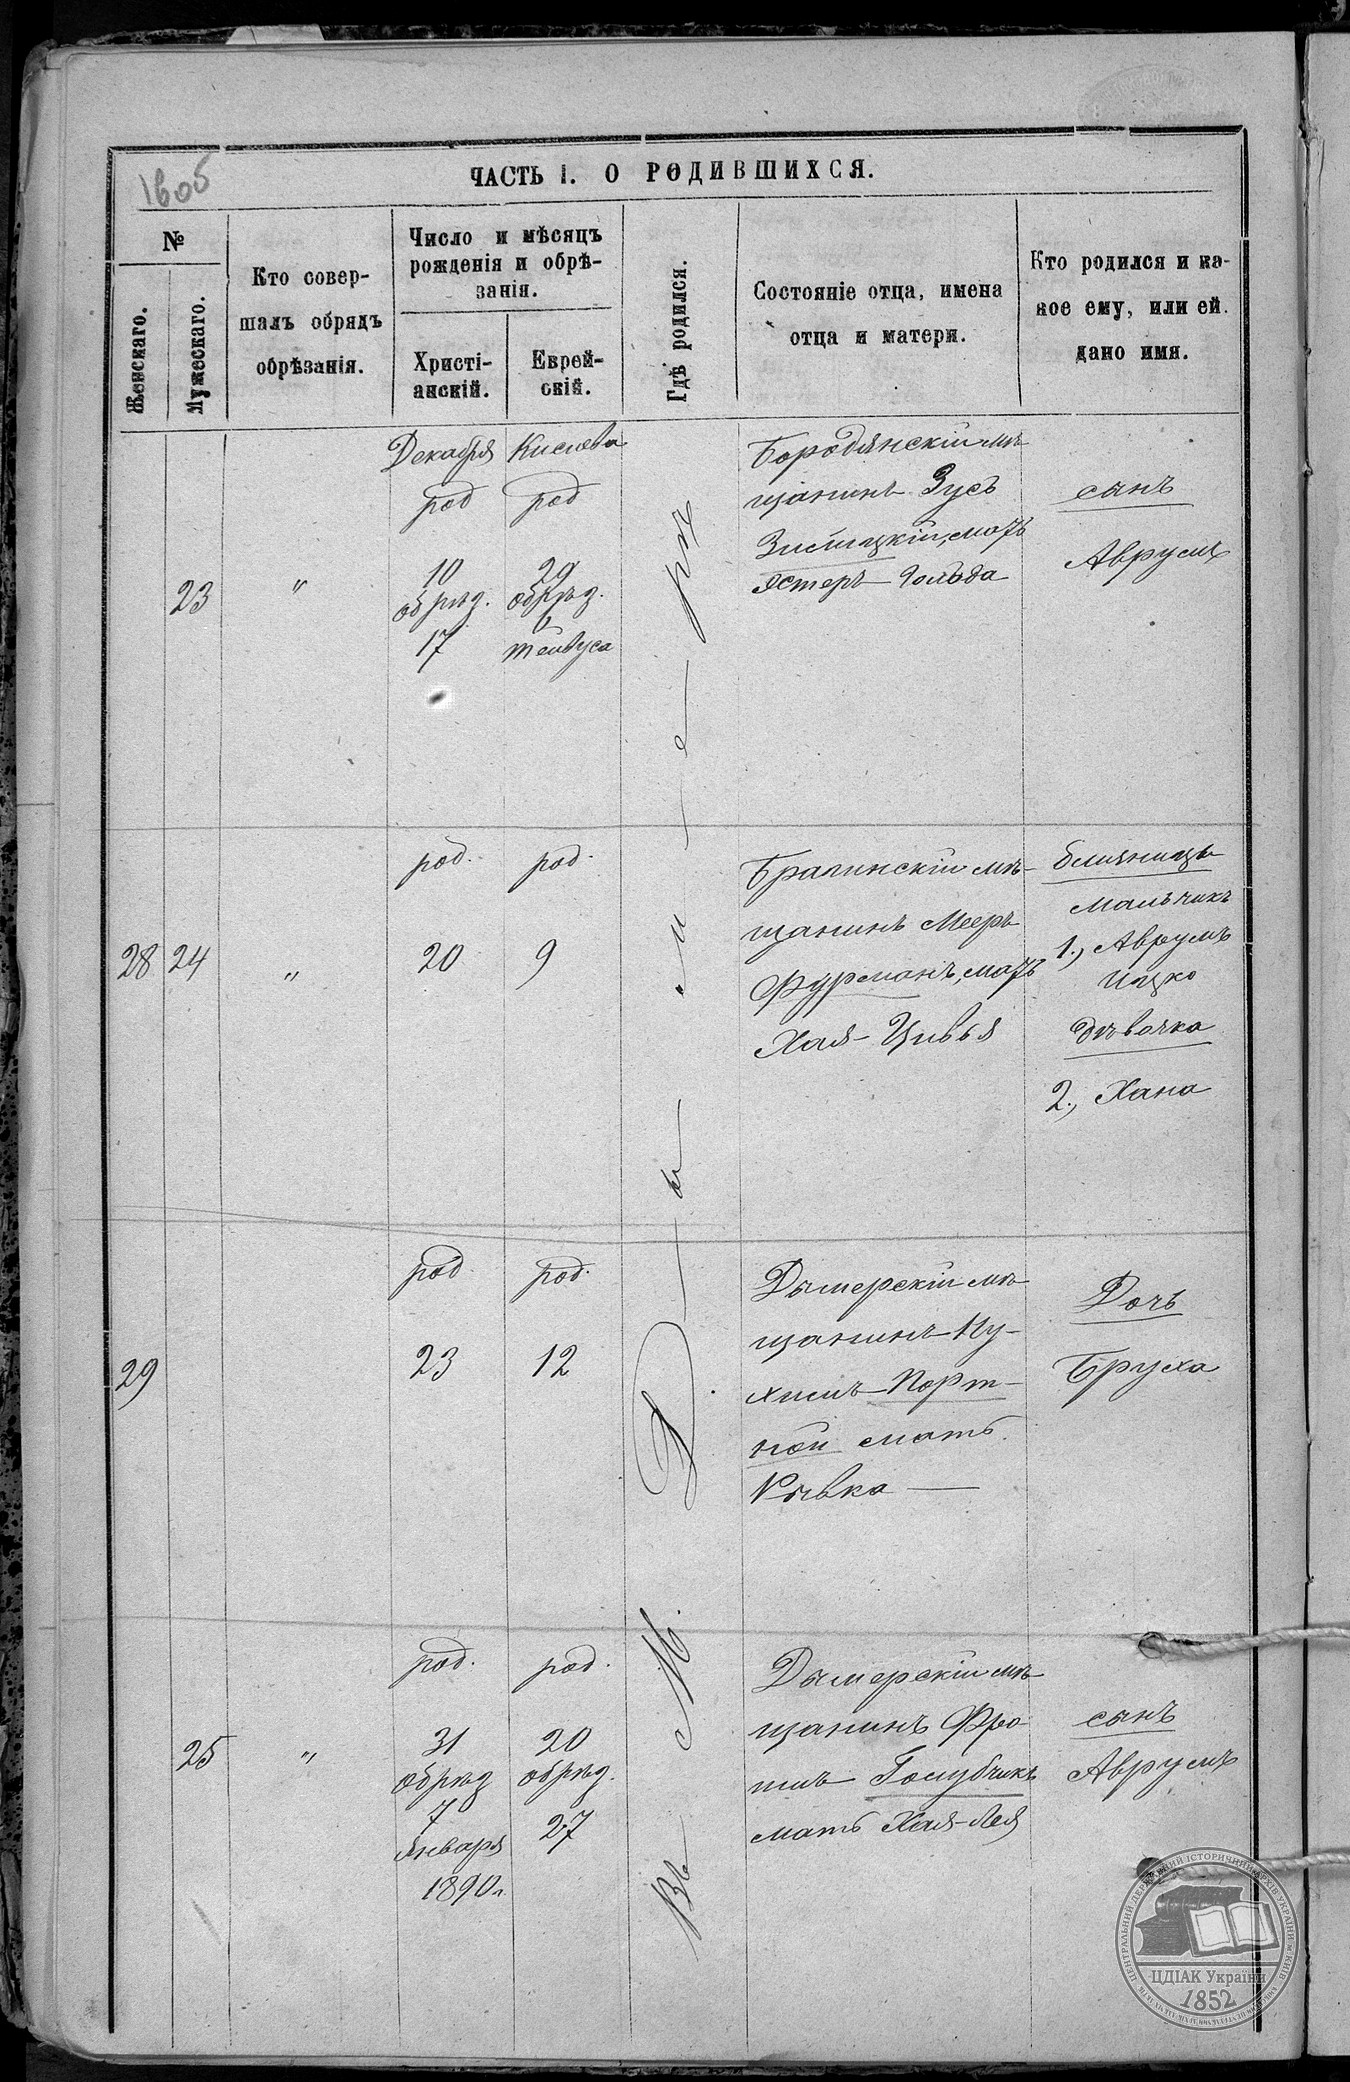 1605
ЧАСТЬ I. О РОДИВШИХСЯ.
№
Женскаго.
Мужескаго.
Кто совер-
шалъ обрядъ
обрѣзанія.
Число и мѣсяцъ
рожденія и обрѣ-
занія.
Христі-
анскій.
Еврей-
скій.
Гдѣ родился.
Состояніе отца, имена
отца и матери.
Кто родился и ка-
кое ему, или ей
дано имя.
Въ М. Дымерѣ
23
"
Декабря
род
10
обрѣз.
17
Кислева
род
29
обрѣз.
6
Тейвуса
Бородянскій мѣ-
щанинъ Зусь
мать
Эстеръ-Гольда
сынъ
Аврумъ
28 24
"
род.
20
род.
9
мѣ-
щанинъ Мееръ
Фурманъ, мать
Хая-Цивья
близницы
мальчикъ
1., Аврумъ
Ицко
дѣвочка
2., Хана
29
род
23
род.
12
Дымерскій мѣ-
щанинъ Ну-
химъ Порт-
ной мать
Рывка —
Дочь
Бруха
25
"
род.
31
обрѣз
7
января
1890 г.
род.
20
обрѣз.
27
Дымерскій мѣ-
щанинъ Фро-
имъ Голубчикъ
мать Хая-Лея
сынъ
Аврумъ
ЦЕНТРАЛЬНИЙ ДЕРЖАВНИЙ ІСТОРИЧНИЙ АРХІВ УКРАЇНИ М. КИЇВ
ЦДІАК України
1852